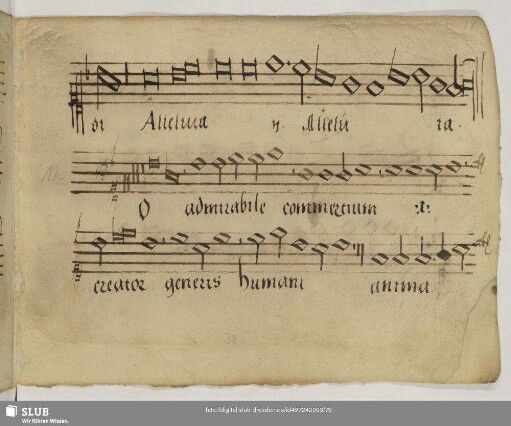 di Alleluia ij. Alleluia.
12
O admirabile commertium ij.
creator generis humani anima
38
SLUB
Wir führen Wissen.
http://digital.slub-dresden.de/id497242303/79